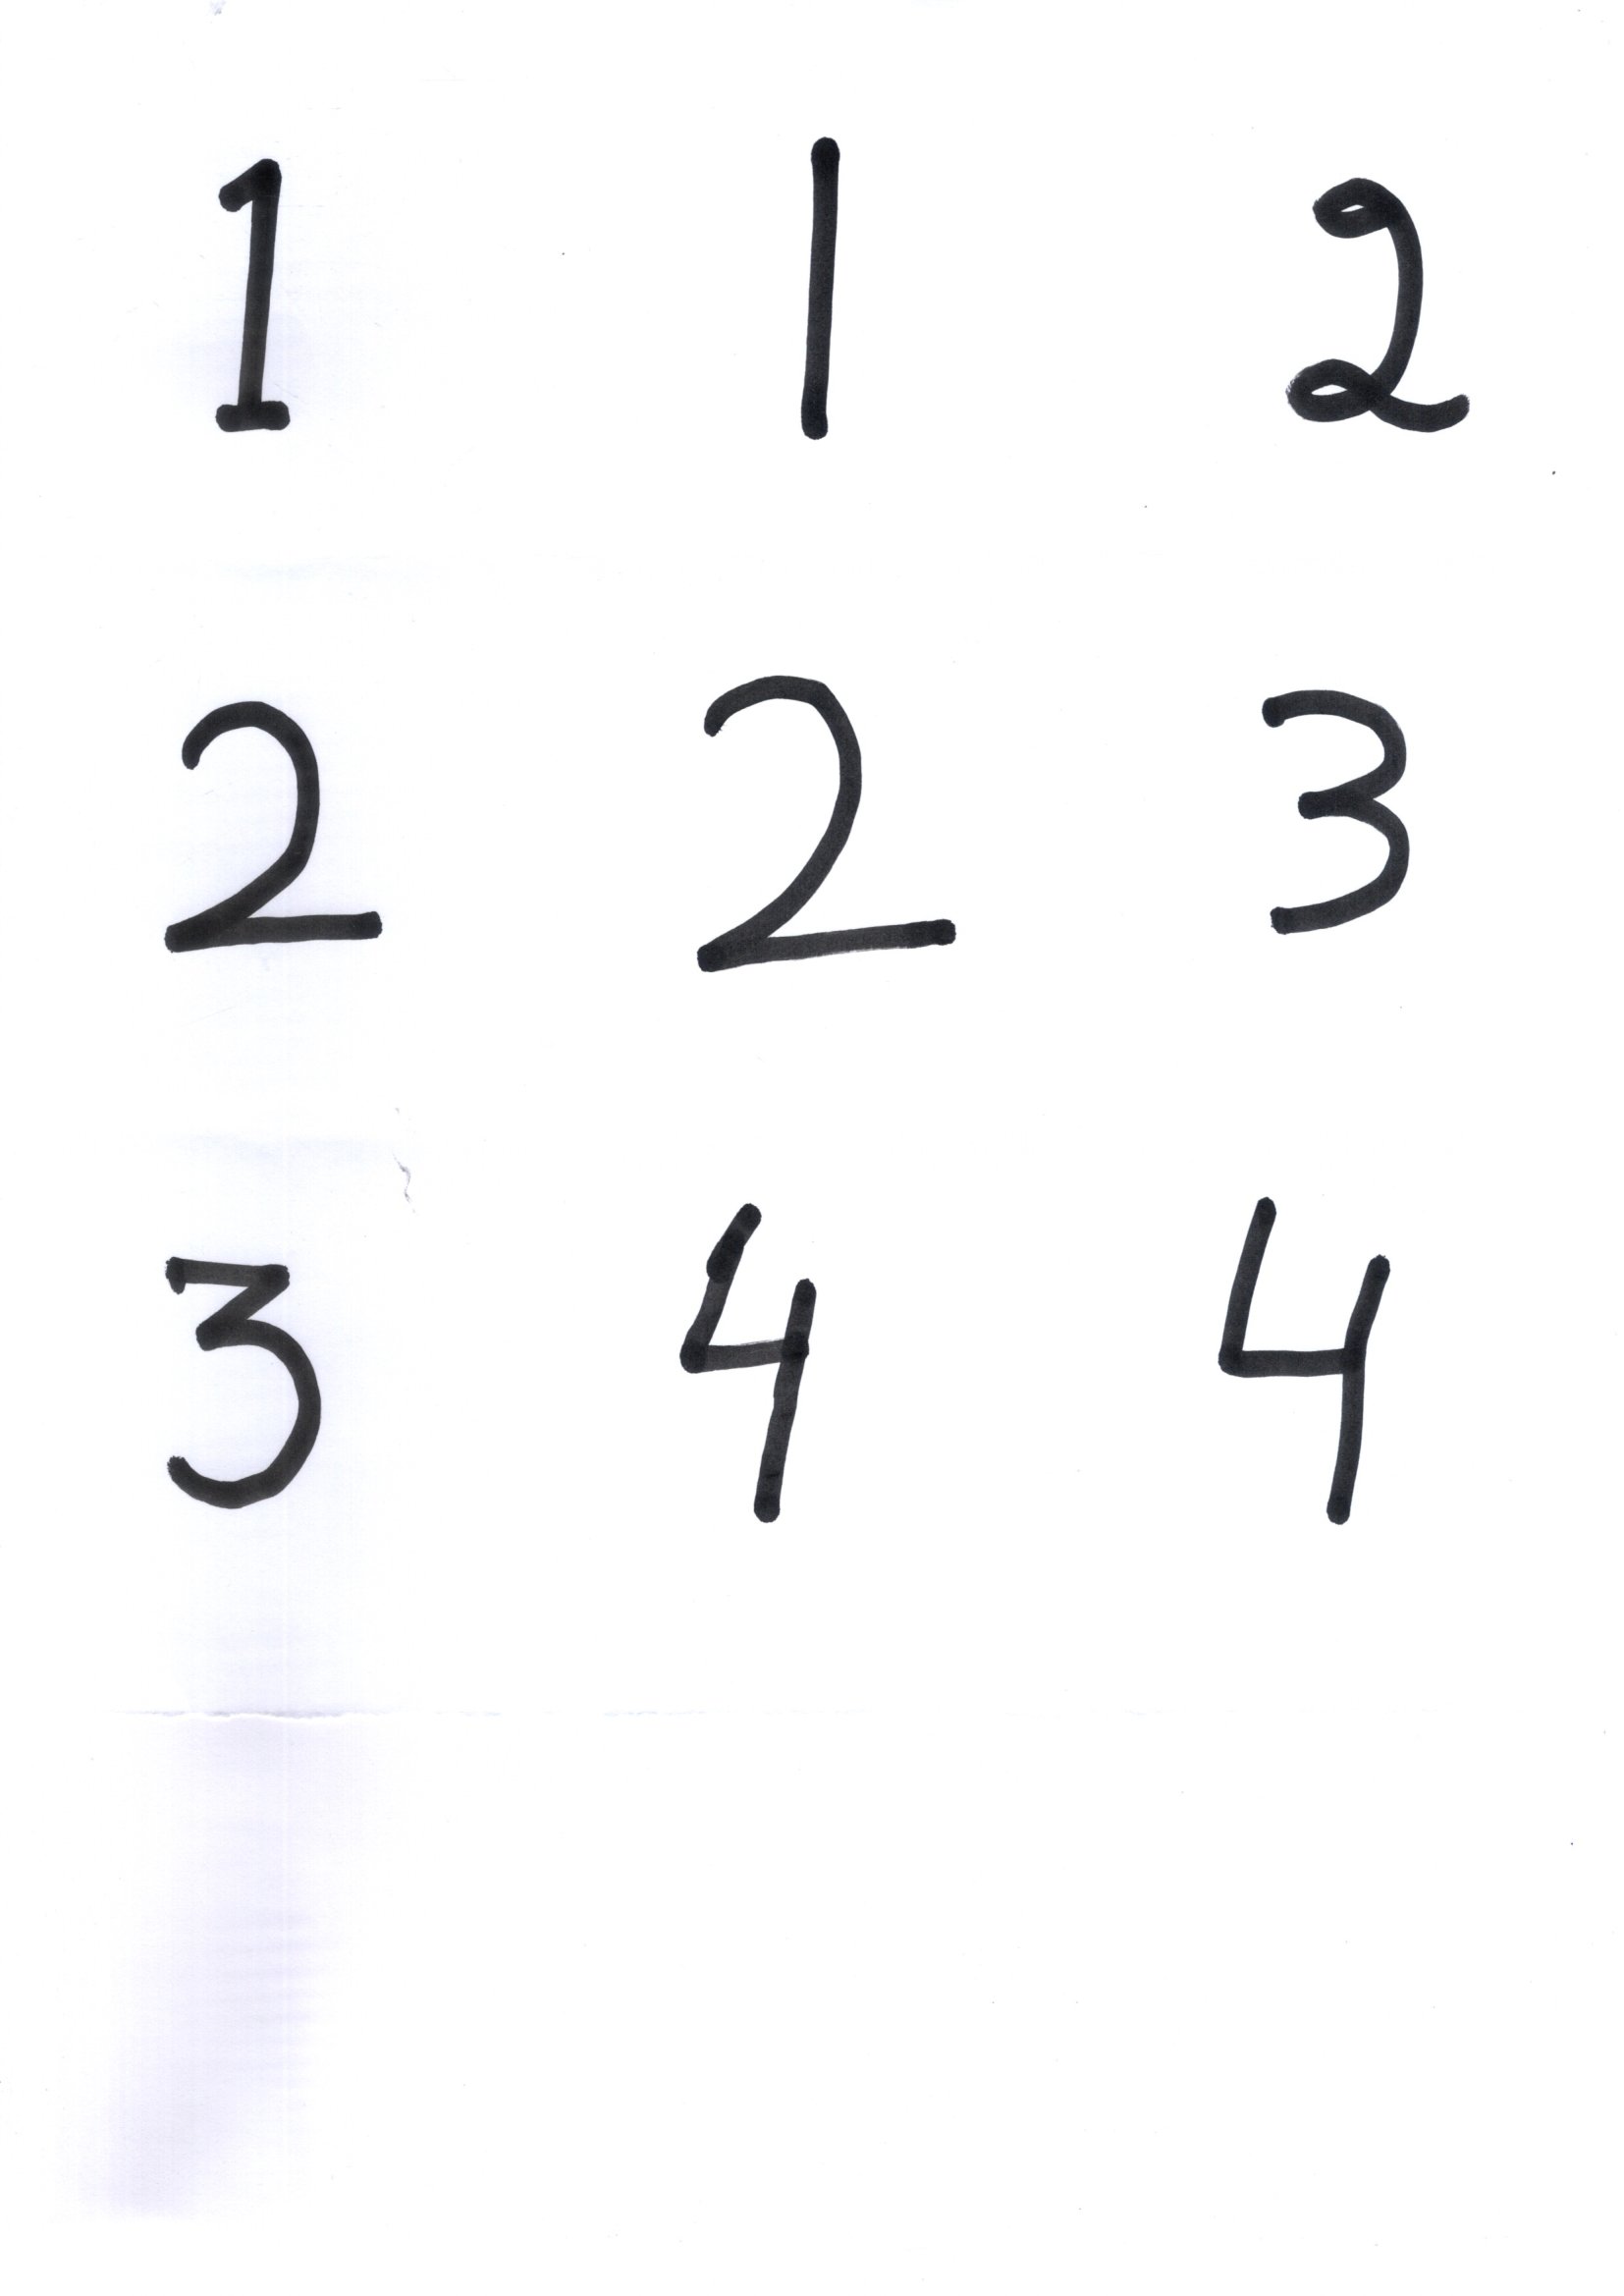 1 1 2
2 2 3
3 4 4